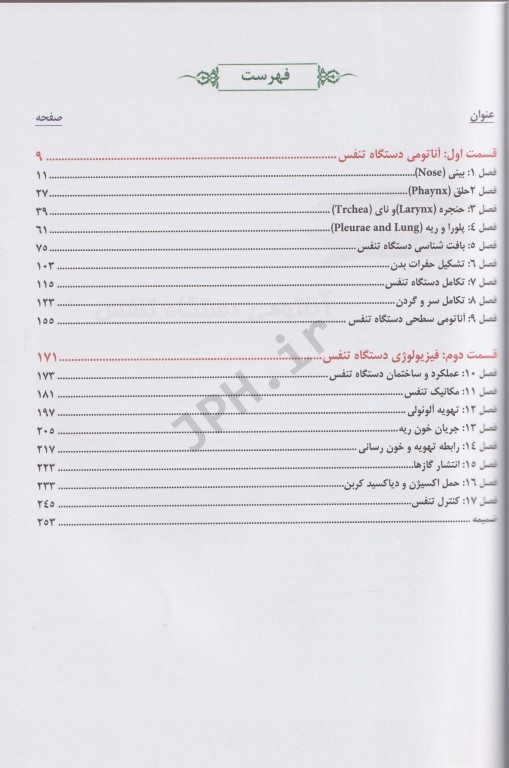 فهرست
عنوان صفحه
قسمت اول: آناتومی دستگاه تنفس ۹
فصل ۱: بینی (Nose) ۱۱
فصل ۲حلق (Phaynx) ۲۷
فصل ۳: حنجره (Larynx)و نای (Trchea) ۳۹
فصل ۴: پلورا و ریه (Pleurae and Lung) ۶۱
فصل ۵: بافت شناسی دستگاه تنفس ۷۵
فصل ۶: تشکیل حفرات بدن ۱۰۳
فصل ۷: تکامل دستگاه تنفس ۱۱۵
فصل ۸: تکامل سر و گردن ۱۲۳
فصل ۹: آناتومی سطحی دستگاه تنفس ۱۵۵
قسمت دوم: فیزیولوژی دستگاه تنفس ۱۷۱
فصل ۱۰: عملکرد و ساختمان دستگاه تنفس ۱۷۳
فصل ۱۱: مکانیک تنفس ۱۸۱
فصل ۱۲: تهویه آلوئولی ۱۹۷
فصل ۱۳: جریان خون ریه ۲۰۵
فصل ۱۴: رابطه تهویه و خون رسانی ۲۱۷
فصل ۱۵: انتشار گازها ۲۲۳
فصل ۱۶: حمل اکسیژن و دیاکسید کربن ۲۳۳
فصل ۱۷: کنترل تنفس ۲۴۵
ضمیمه ۲۵۳
JPH.ir